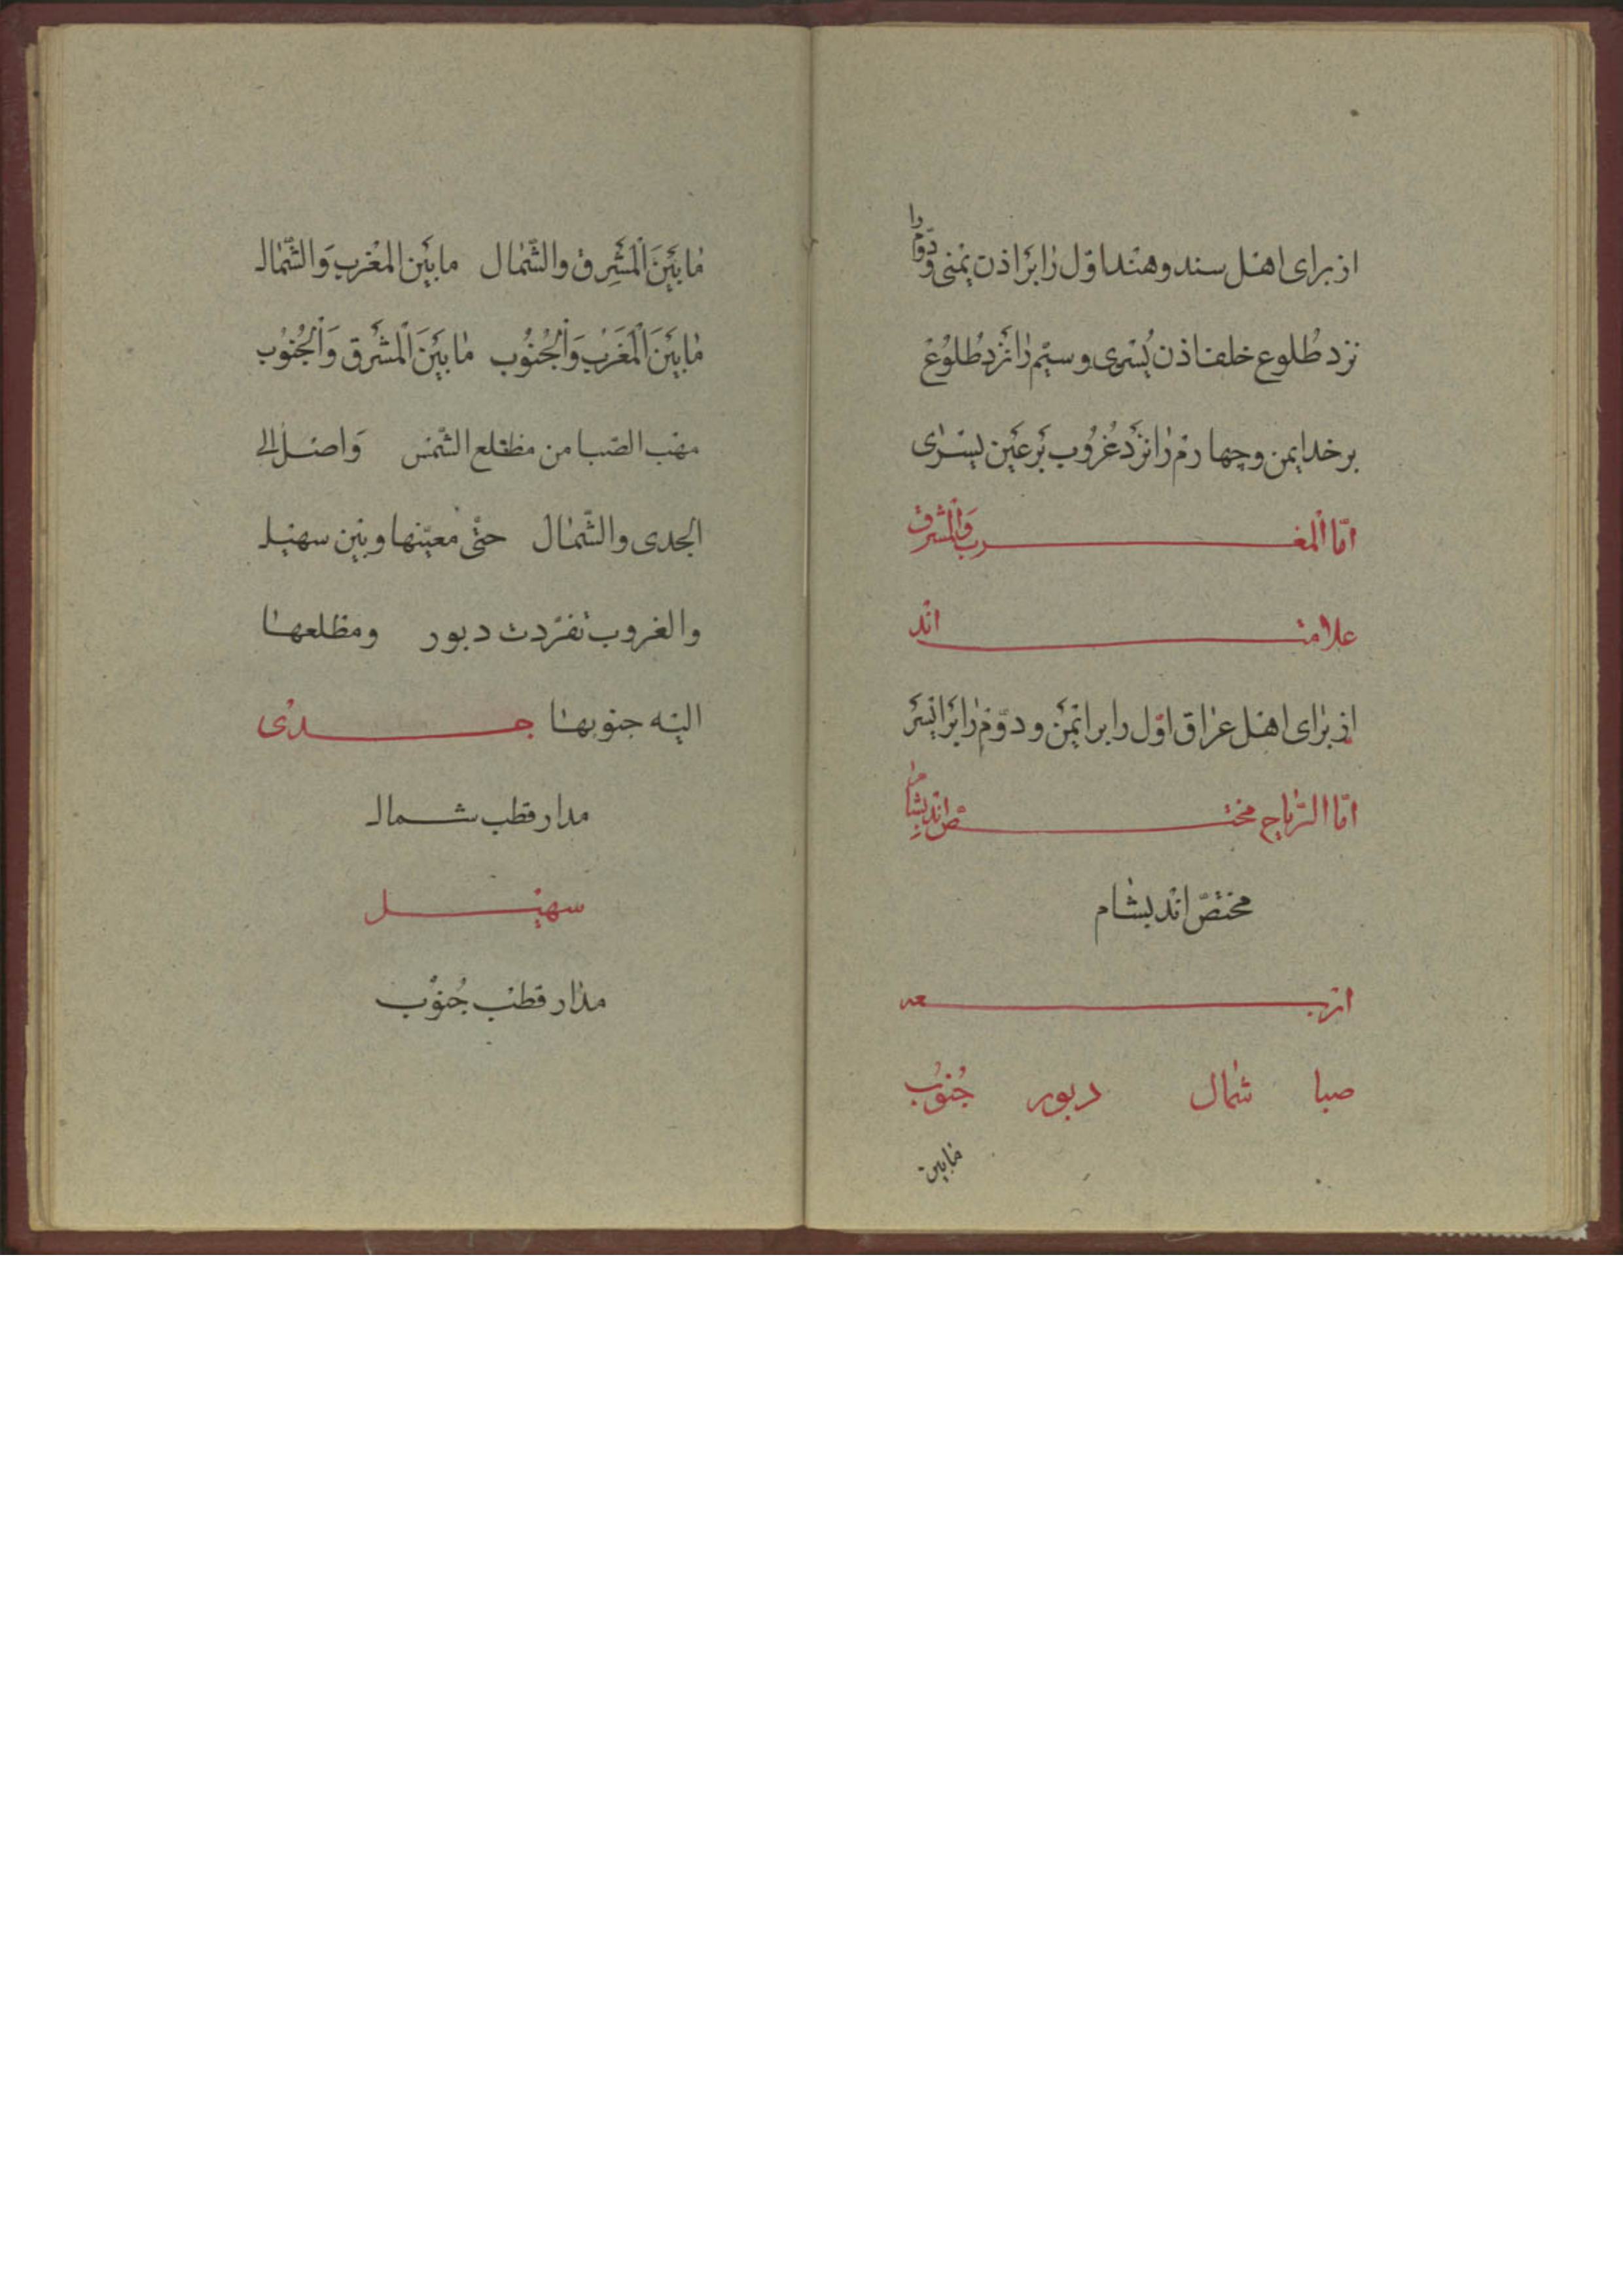 از برای اهل سند و هند اوّل را برٰ اذن یمنی و دوّم را
نزد طُلوع خلف اذن یُسری و سیّم رٰا نزد طُلوُع
بر خد ایمن و چهارم رٰا نزد غُروُب بَر عَین یسرٰی
امّا المغرب وَالْمشرق
علامت اند
از برٰای اهل عرٰاق اوّل را بر ایمَن و دوّم رٰا برَ ایسَر
امّا الرّیاح مختصّ اند بشام را
مختصّ اند بشام
اربعه
صبا شمٰال دبور جُنوُب
مٰابین
مٰا بَینَ الْمَشرِق والشّمٰال ما بَین المغْرب وَالشّمٰال
مٰا بَینَ الْمَغَرْب وَالْجُنوُب مٰا بَینَ الْمَشَرق وَالْجُنوُب
مهب الصّبا من مطلع الشّمس وَاصل الی
الجدی والشّمٰال حتّی معیّنها و بین سهیل
والغروب تفرّدت دبور و مطلعهٰا
الیه جنوبهٰا جدی
مدار قطب شمال
سهیل
مدٰار قطب جُنوُب